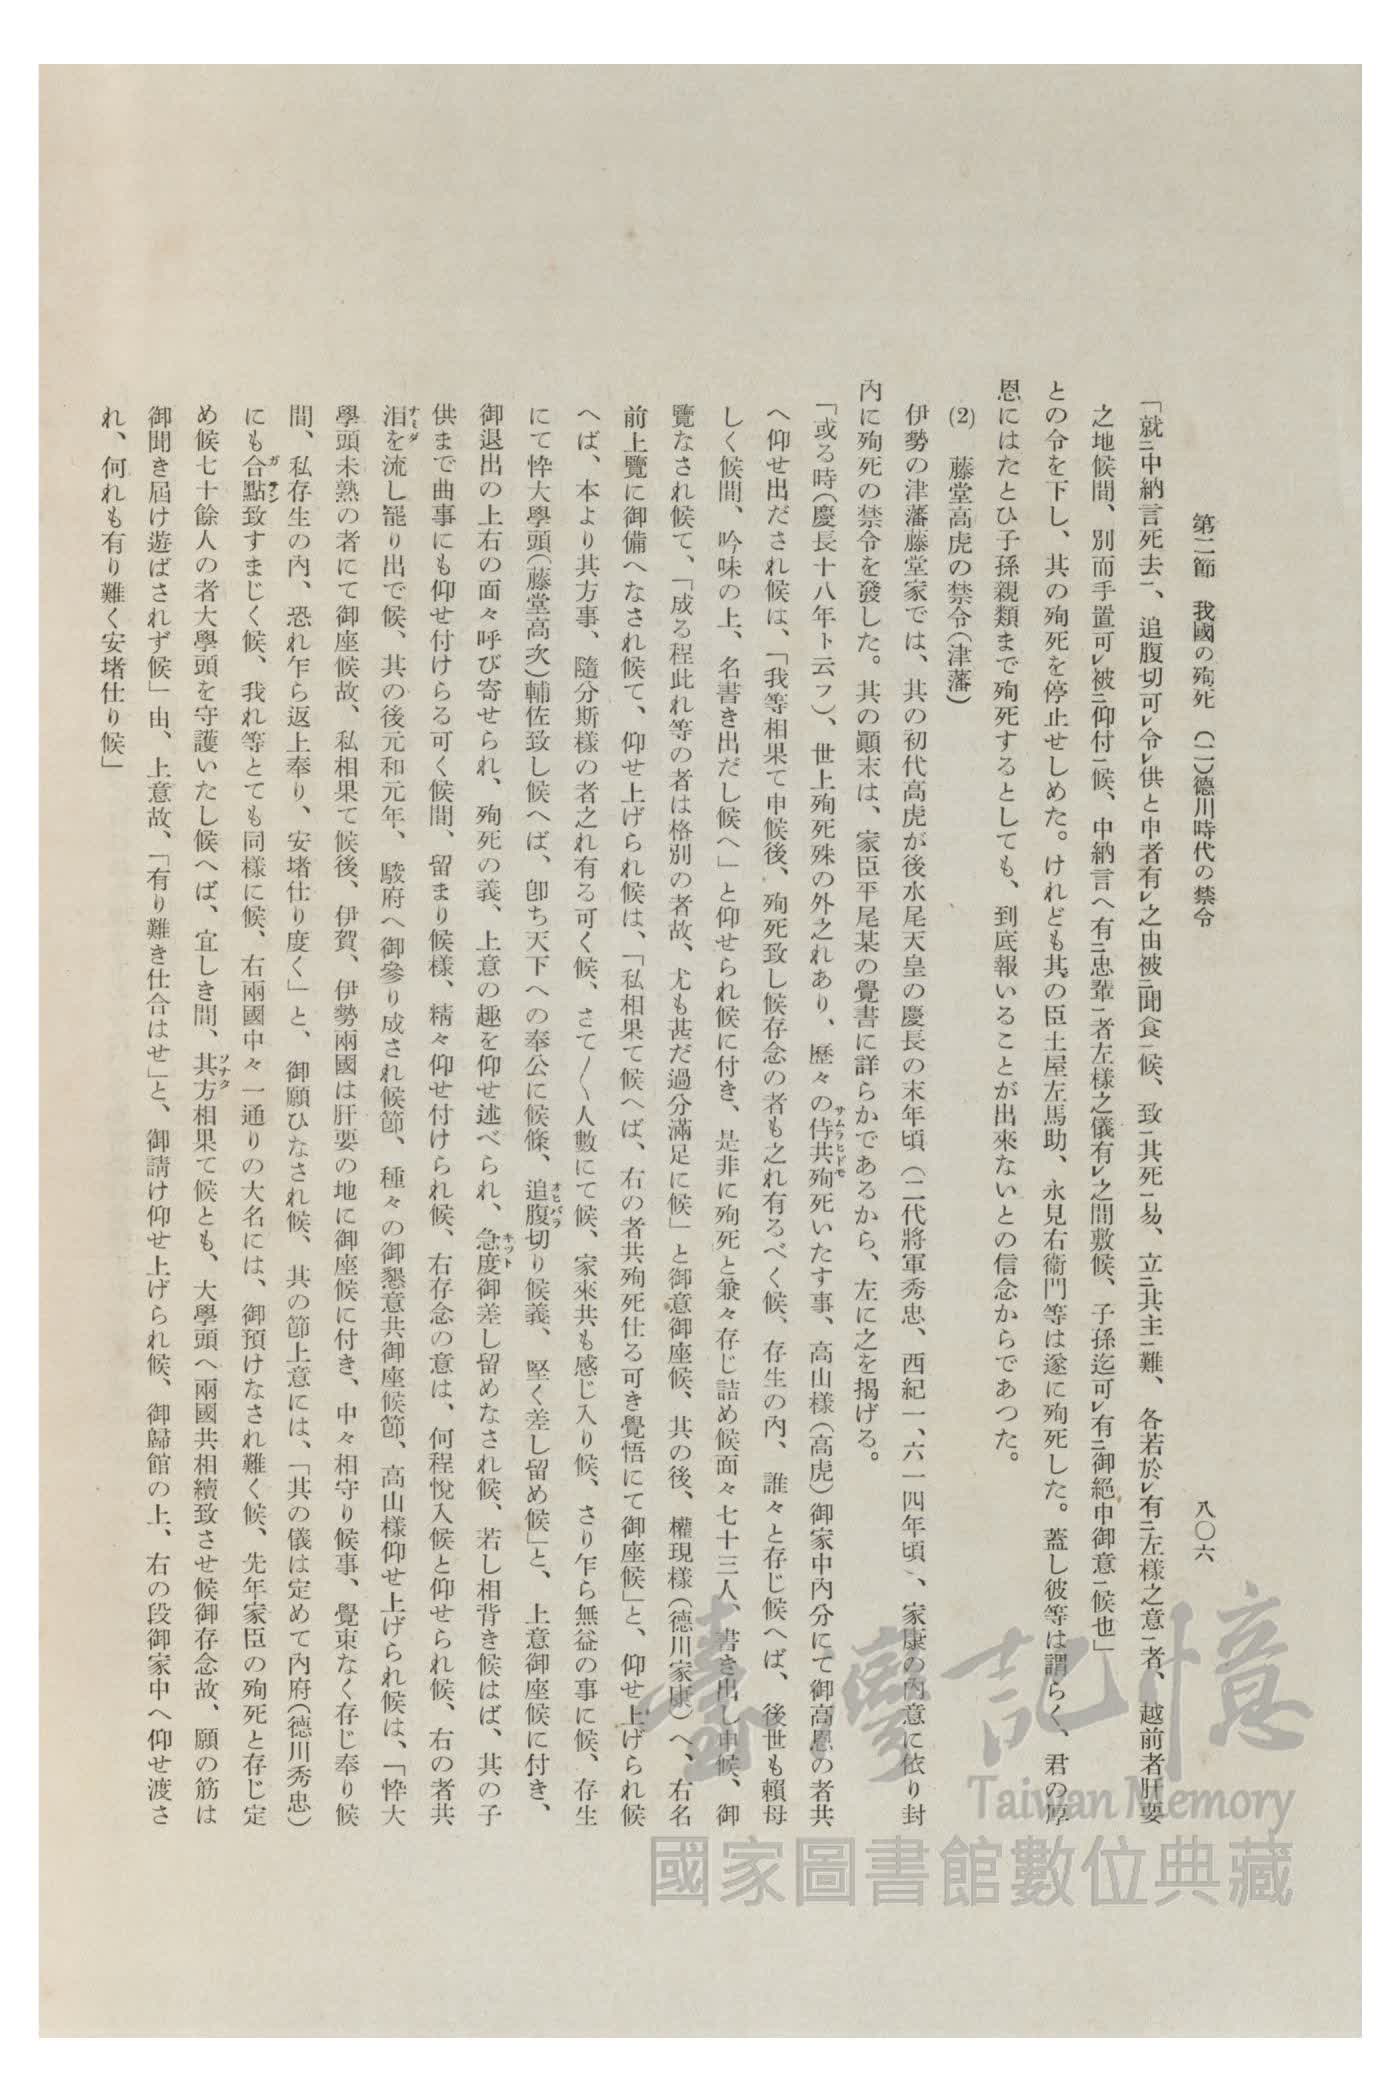 第二節 我國の殉死 (二)德川時代の禁令
八〇六
「就ニ中納言死去一、追腹切可レ令レ供と申者有レ之由被ニ聞食一候、致ニ其死一易、立ニ其主一難、各若於レ有ニ左樣之意一者、越前者肝要
之地候間、別而手置可レ被ニ仰付一候、中納言へ有ニ忠輩一者左樣之儀有レ之間敷候、子孫迄可レ有ニ御絕申御意一候也」
との令を下し、其の殉死を停止せしめた。けれども其の臣土屋左馬助、永見右衞門等は遂に殉死した。蓋し彼等は謂らく、君の厚
恩にはたとひ子孫親類まで殉死するとしても、到底報いることが出來ないとの信念からであつた。
(2) 藤堂高虎の禁令(津藩)
伊勢の津藩藤堂家では、其の初代高虎が後水尾天皇の慶長の末年頃(二代將軍秀忠、西紀一、六一四年頃)、家康の內意に依り封
內に殉死の禁令を發した。其の顚末は、家臣平尾某の覺書に詳らかであるから、左に之を揭げる。
「或る時(慶長十八年ト云フ)、世上殉死殊の外之れあり、歷々の侍共サムラヒドモ殉死いたす事、高山樣(高虎)御家中內分にて御高恩の者共
へ仰せ出だされ候は、「我等相果て申候後、殉死致し候存念の者も之れ有るべく候、存生の內、誰々と存じ候へば、後世も賴母
しく候間、吟味の上、名書き出だし候へ」と仰せられ候に付き、是非に殉死と兼々存じ詰め候面々七十三人、書き出し申候、御
覽なされ候て、「成る程此れ等の者は格別の者故、尤も甚だ過分滿足に候」と御意御座候、其の後、權現樣(德川家康)へ、右名
前上覽に御備へなされ候て、仰せ上げられ候は、「私相果て候へば、右の者共殉死仕る可き覺悟にて御座候」と、仰せ上げられ候
へば、本より其方事、隨分斯樣の者之れ有る可く候、さて〱人數にて候、家來共も感じ入り候、さり乍ら無益の事に候、存生
にて忰大學頭(藤堂高次)輔佐致し候へば、卽ち天下への奉公に候條、追腹オヒバラ切り候義、堅く差し留め候」と、上意御座候に付き、
御退出の上右の面々呼び寄せられ、殉死の義、上意の趣を仰せ述べられ、急度キット御差し留めなされ候、若し相背き候はば、其の子
供まで曲事にも仰せ付けらる可く候間、留まり候樣、精々仰せ付けられ候、右存念の意は、何程悅入候と仰せられ候、右の者共
泪ナミダを流し罷り出で候、其の後元和元年、駿府へ御參り成され候節、種々の御懇意共御座候節、高山樣仰せ上げられ候は、「忰大
學頭未熟の者にて御座候故、私相果て候後、伊賀、伊勢兩國は肝要の地に御座候に付き、中々相守り候事、覺束なく存じ奉り候
間、私存生の內、恐れ乍ら返上奉り、安堵仕り度く」と、御願ひなされ候、其の節上意には、「其の儀は定めて內府(德川秀忠)
にも合點ガテン致すまじく候、我れ等とても同樣に候、右兩國中々一通りの大名には、御預けなされ難く候、先年家臣の殉死と存じ定
め候七十餘人の者大學頭を守護いたし候へば、宜しき間、其方ソナタ相果て候とも、大學頭へ兩國共相續致させ候御存念故、願の筋は
御聞き屆け遊ばされず候」由、上意故、「有り難き仕合はせ」と、御請け仰せ上げられ候、御歸館の上、右の段御家中へ仰せ渡さ
れ、何れも有り難く安堵仕り候」
臺灣記憶
Taiwan Memory
國家圖書館數位典藏